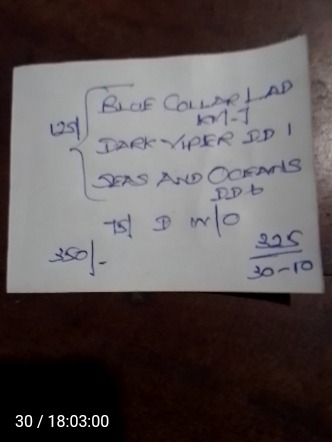 BLUE COLLAR LAD
KM-J
125/
DARK VIPER DD 1
SEAS AND OCEANS
DD 6
75/ D W/O
350/-
325
30-10
30 / 18:03:00